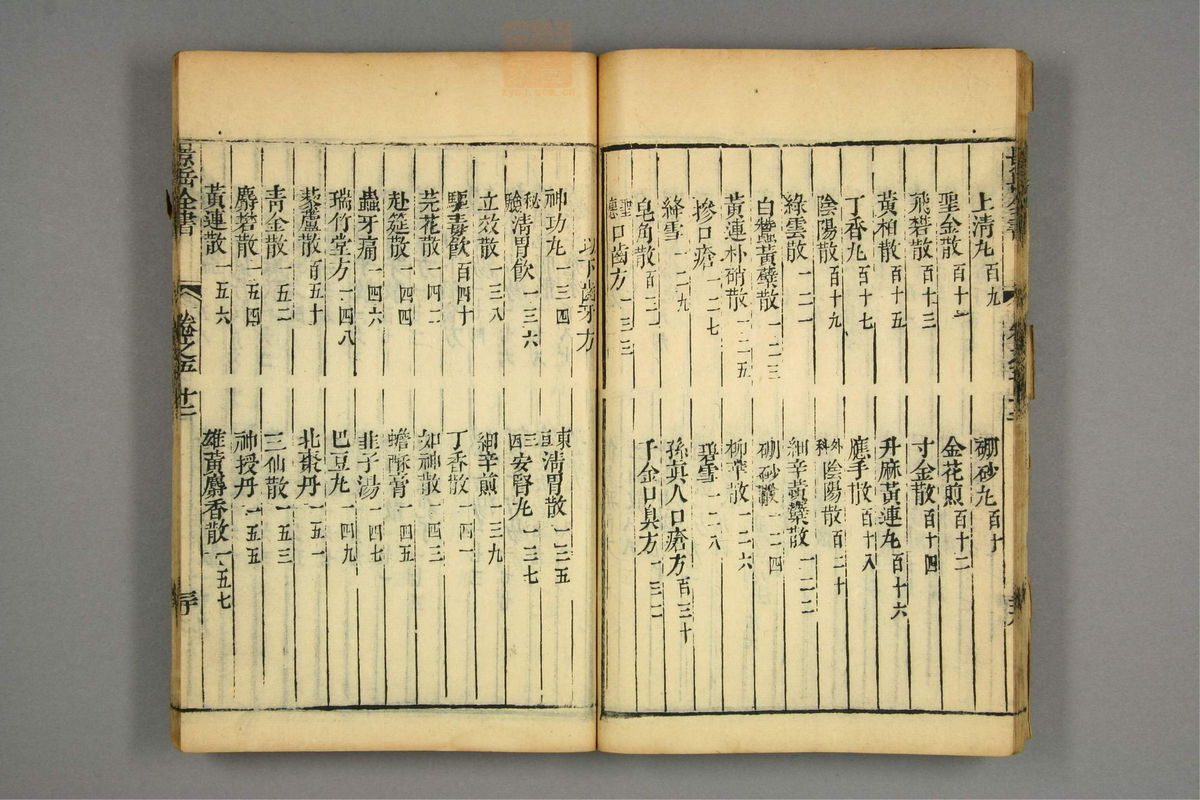 上清丸百九
硼砂丸百十
聖金散百十一
金花煎百十二
飛礬散百十三
寸金散百十四
黃柏散百十五
升麻黃連丸百十六
丁香丸百十七
應手散百十八
陰陽散百十九
外科陰陽散百二十
綠雲散一二一
細辛黃蘗散一二二
白蠶黃蘗散一二三
硼砂散一二四
黃連朴硝散一二五
柳華散一二六
摻口瘡一二七
碧雪一二八
絳雪一二九
孫真人口瘡方百三十
皂角散百三一
千金口臭方一三二
聖惠口齒方一三三
以下齒牙方
神功丸一三四
東垣清胃散一三五
秘驗清胃飲一三六
三因安腎丸一三七
立效散一三八
細辛煎一三九
驅毒飲百四十
丁香散一四一
芫花散一四二
如神散一四三
赴筵散一四四
蟾酥膏一四五
蟲牙痛一四六
韭子湯一四七
瑞竹堂方一四八
巴豆丸一四九
藜蘆散百五十
北棗丹一五一
青金散一五二
三仙散一五三
麝礬散一五四
神授丹一五五
黃連散一五六
雄黃麝香散一五七
景岳全書
卷之五十二
三十